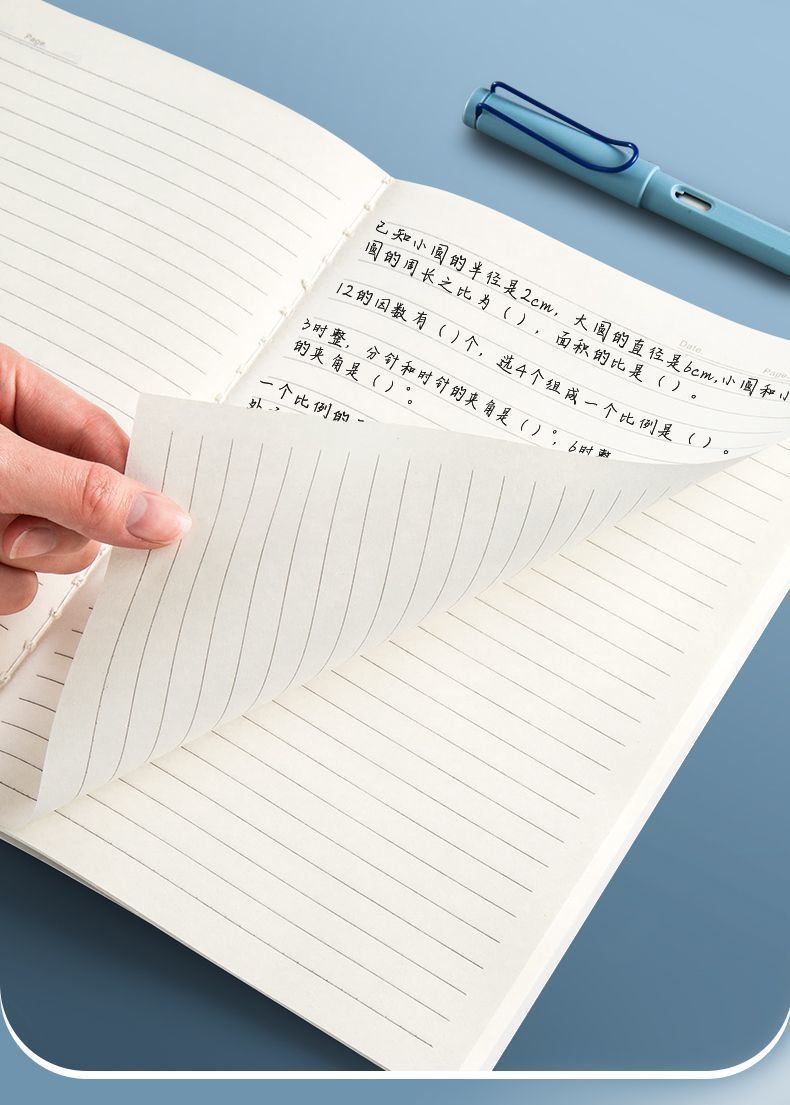 Page.
Date.
Page.
已知小圆的半径是2cm，大圆的直径是6cm，小圆和小
圆的周长之比为（），面积的比是（）。
12的因数有（）个，选4个组成一个比例是（）。
3时整，分针和时针的夹角是（）；6时整
的夹角是（）。
一个比例的